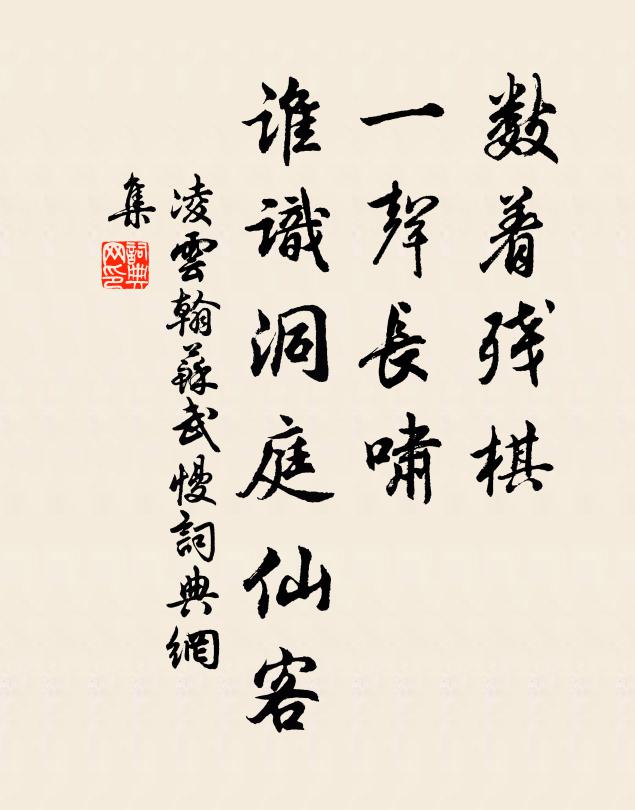 數着残棋
一聲長嘯
誰識洞庭仙客
凌雲翰蘇武慢詞典網
集
詞典
网印